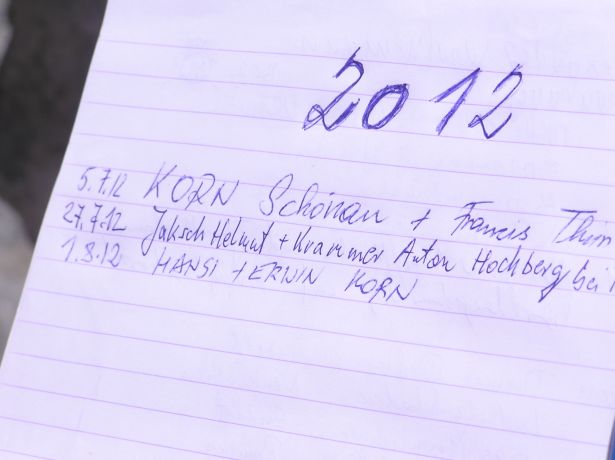 2012
5.7.12 KORN Schönau + Francis
27.7.12 Jaksch Helmut + Krammer Anton Hochberg bei
1.8.12 HANSI + ERWIN KORN